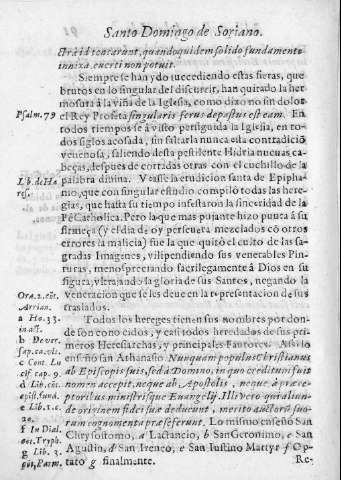 Santo Domingo de Soriano.
tra id tentarunt, quandoquidem solido fundamento
innixa everti non potuit.
Siempre se han ydo succediendo estas fieras, que
brutos en lo singular del discurrir, han quitado la her
mosura à la viña de la Iglesia, como dixo no sin dolor
Psalm. 79
el Rey Profeta singularis ferus depastus est eam. En
todos tiempos se à visto perseguida la Iglesia, en to-
dos siglos acosada, sin faltarla nunca esta contradició
venenosa, saliendo desta pestilente Hidria nuevas ca-
beças, despues de cortadas otras con el cuchillo de la
Lib. de Ha
res.
palabra divina. Vease la erudicion santa de Epipha-
nio, que con singular estudio compiló todas las here-
gias, que hasta su tiempo infestaron la sinceridad de la
Fè Catholica. Pero la que mas pujante hizo punta à su
firmeça (y el dia de oy persevera mezclados cō otros
errores la malicia) fue la que quitó el culto de las sa-
gradas Imagenes, vilipendiendo sus venerables Pin-
turas, menospreciando sacrilegamente à Dios en su
figura, ultrajando la gloria de sus Santos, negando la
veneracion que se les deve en la representacion de sus
traslados.
Orat. 2. cōt.
Arrian.
a Ho. 33.
in act.
b De ver.
sap. ca. vlt.
c Cont. Lu
cif. cap. 9.
d Lib. cōt.
epist. fund.
e Lib. 1. c.
20.
f In Dial.
cōt. Tryph.
g Lib. 3.
cōt. Parm.
Todos los hereges tienen sus nombres por don-
de son conocidos, y casi todos heredados de sus pri-
meros Heresiarchas, y principales Fautores. Assi lo
enseñó san Athanasio. Nunquam populus Christianus
ab Episcopis suis, sed à Domino, in quo creditum fuit
nomen accepit, neque ab Apostolis, neque à præce-
ptoribus ministrisque Euangelij. Illi vero qui aliun-
de originem fidei suæ deducunt, merito auctorū suo-
rum cognomenta præseferunt. Lo mismo enseñó San
Chrysostomo, a Lactancio, b San Geronimo, c San
Agustin, d San Ireneo, e San Iustino Martyr f Op-
tato g finalmente.
Re-